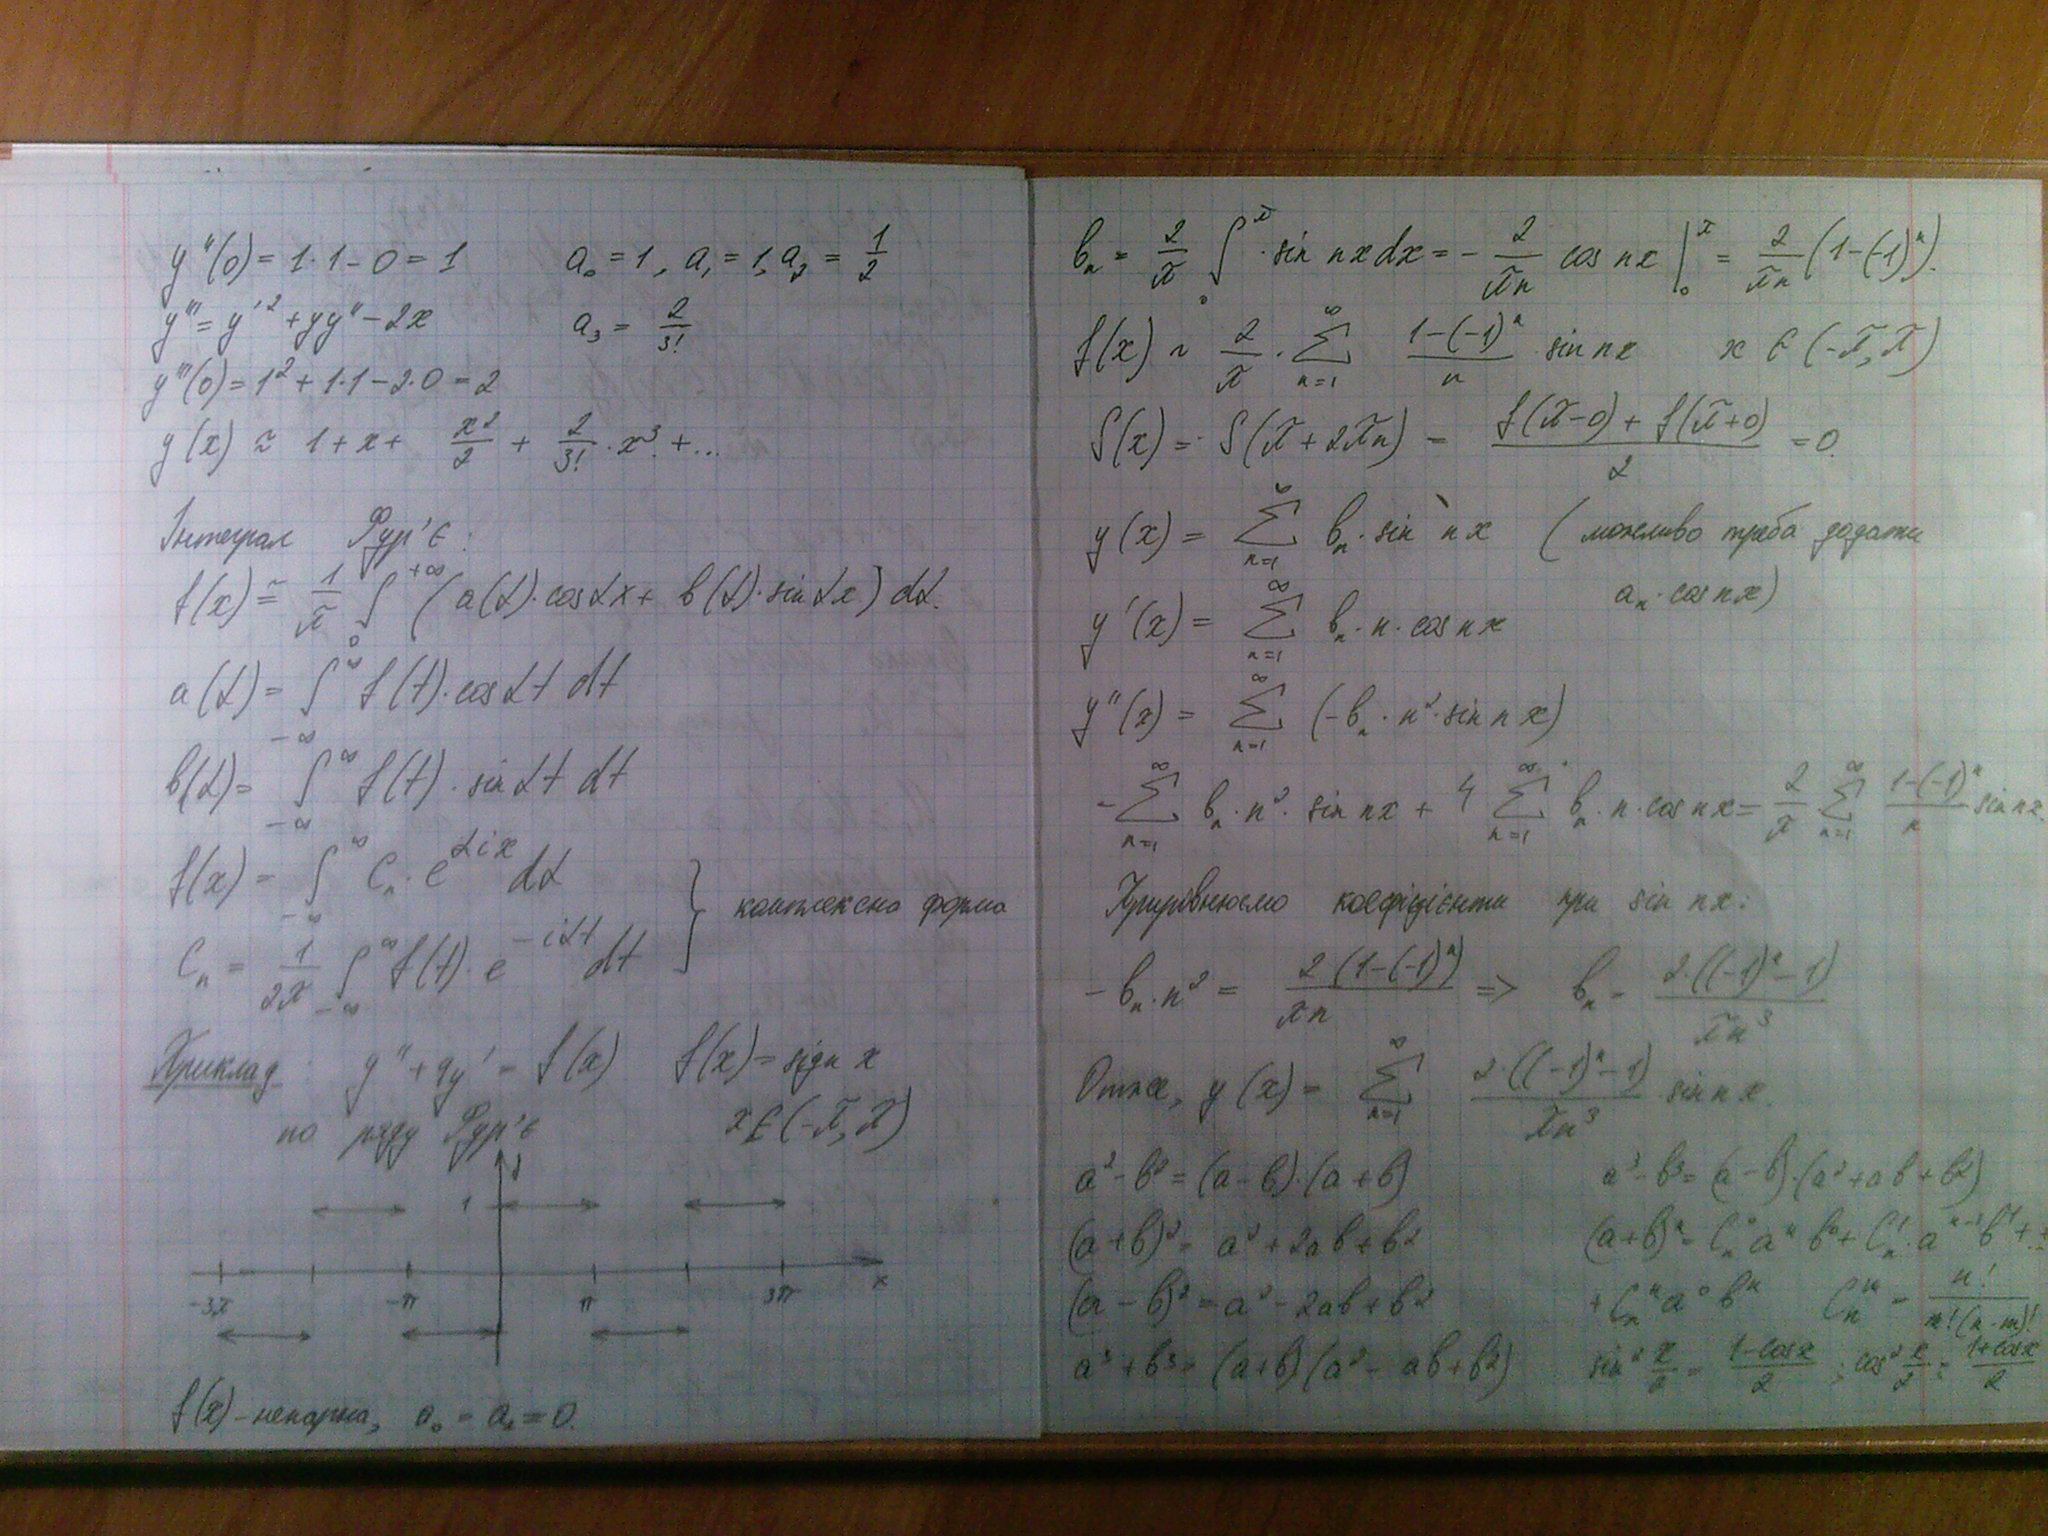 y''(0) = 1·1 - 0 = 1    a₀ = 1, a₁ = 1, a₂ = 1/2
y''' = y'² + yy'' - 2x    a₃ = 2/3!
y'''(0) = 1² + 1·1 - 2·0 = 2
y(x) ≈ 1 + x + x²/2 + 2/3! · x³ + ...
Інтеграл Фур'є:
f(x) ≃ 1/π ∫₀^{+∞} (a(α)·cos αx + b(α)·sin αx) dα.
a(α) = ∫_{-∞}^{∞} f(t)·cos αt dt
b(α) = ∫_{-∞}^{∞} f(t)·sin αt dt
f(x) = ∫_{-∞}^{∞} Cₙ·e^{αix} dα
} комплексна форма
Cₙ = 1/2π ∫_{-∞}^{∞} f(t)·e^{-iαt} dt
Приклад: y'' + 4y' = f(x)    f(x) = sign x
по ряду Фур'є    x ∈ (-π, π)
1
-3π -π π 3π x
f(x) - непарна, a₀ = aₙ = 0.
bₙ = 2/π ∫₀^π · sin nx dx = - 2/πn cos nx |₀^π = 2/πn (1-(-1)ⁿ).
f(x) ~ 2/π · ∑_{n=1}^{∞} (1-(-1)ⁿ)/n · sin nx    x ∈ (-π, π)
S(x) = S(π + 2πn) = (f(π-0) + f(π+0))/2 = 0.
y(x) = ∑_{n=1}^{∞} bₙ·sin nx    (можливо треба додати
aₙ·cos nx)
y'(x) = ∑_{n=1}^{∞} bₙ·n·cos nx
y''(x) = ∑_{n=1}^{∞} (-bₙ·n²·sin nx)
-∑_{n=1}^{∞} bₙ·n²·sin nx + 4 ∑_{n=1}^{∞} bₙ·n·cos nx = 2/π · ∑_{n=1}^{∞} (1-(-1)ⁿ)/n sin nx
Прирівнюємо коефіцієнти при sin nx:
-bₙ·n² = 2(1-(-1)ⁿ)/πn => bₙ = 2·((-1)ⁿ-1)/πn³
Отже, y(x) = ∑_{n=1}^{∞} 2·((-1)ⁿ-1)/πn³ sin nx.
a² - b² = (a-b)·(a+b)    a³ - b³ = (a-b)·(a²+ab+b²)
(a+b)² = a² + 2ab + b²    (a+b)ⁿ = Cₙ⁰aⁿb⁰ + Cₙ¹·aⁿ⁻¹b¹ + ... +
(a-b)² = a² - 2ab + b²    + Cₙⁿa⁰bⁿ    Cₙᵐ = n!/m!(n-m)!
a³ + b³ = (a+b)(a² - ab + b²)    sin² x/2 = (1-cos x)/2 ; cos² x/2 = (1+cos x)/2